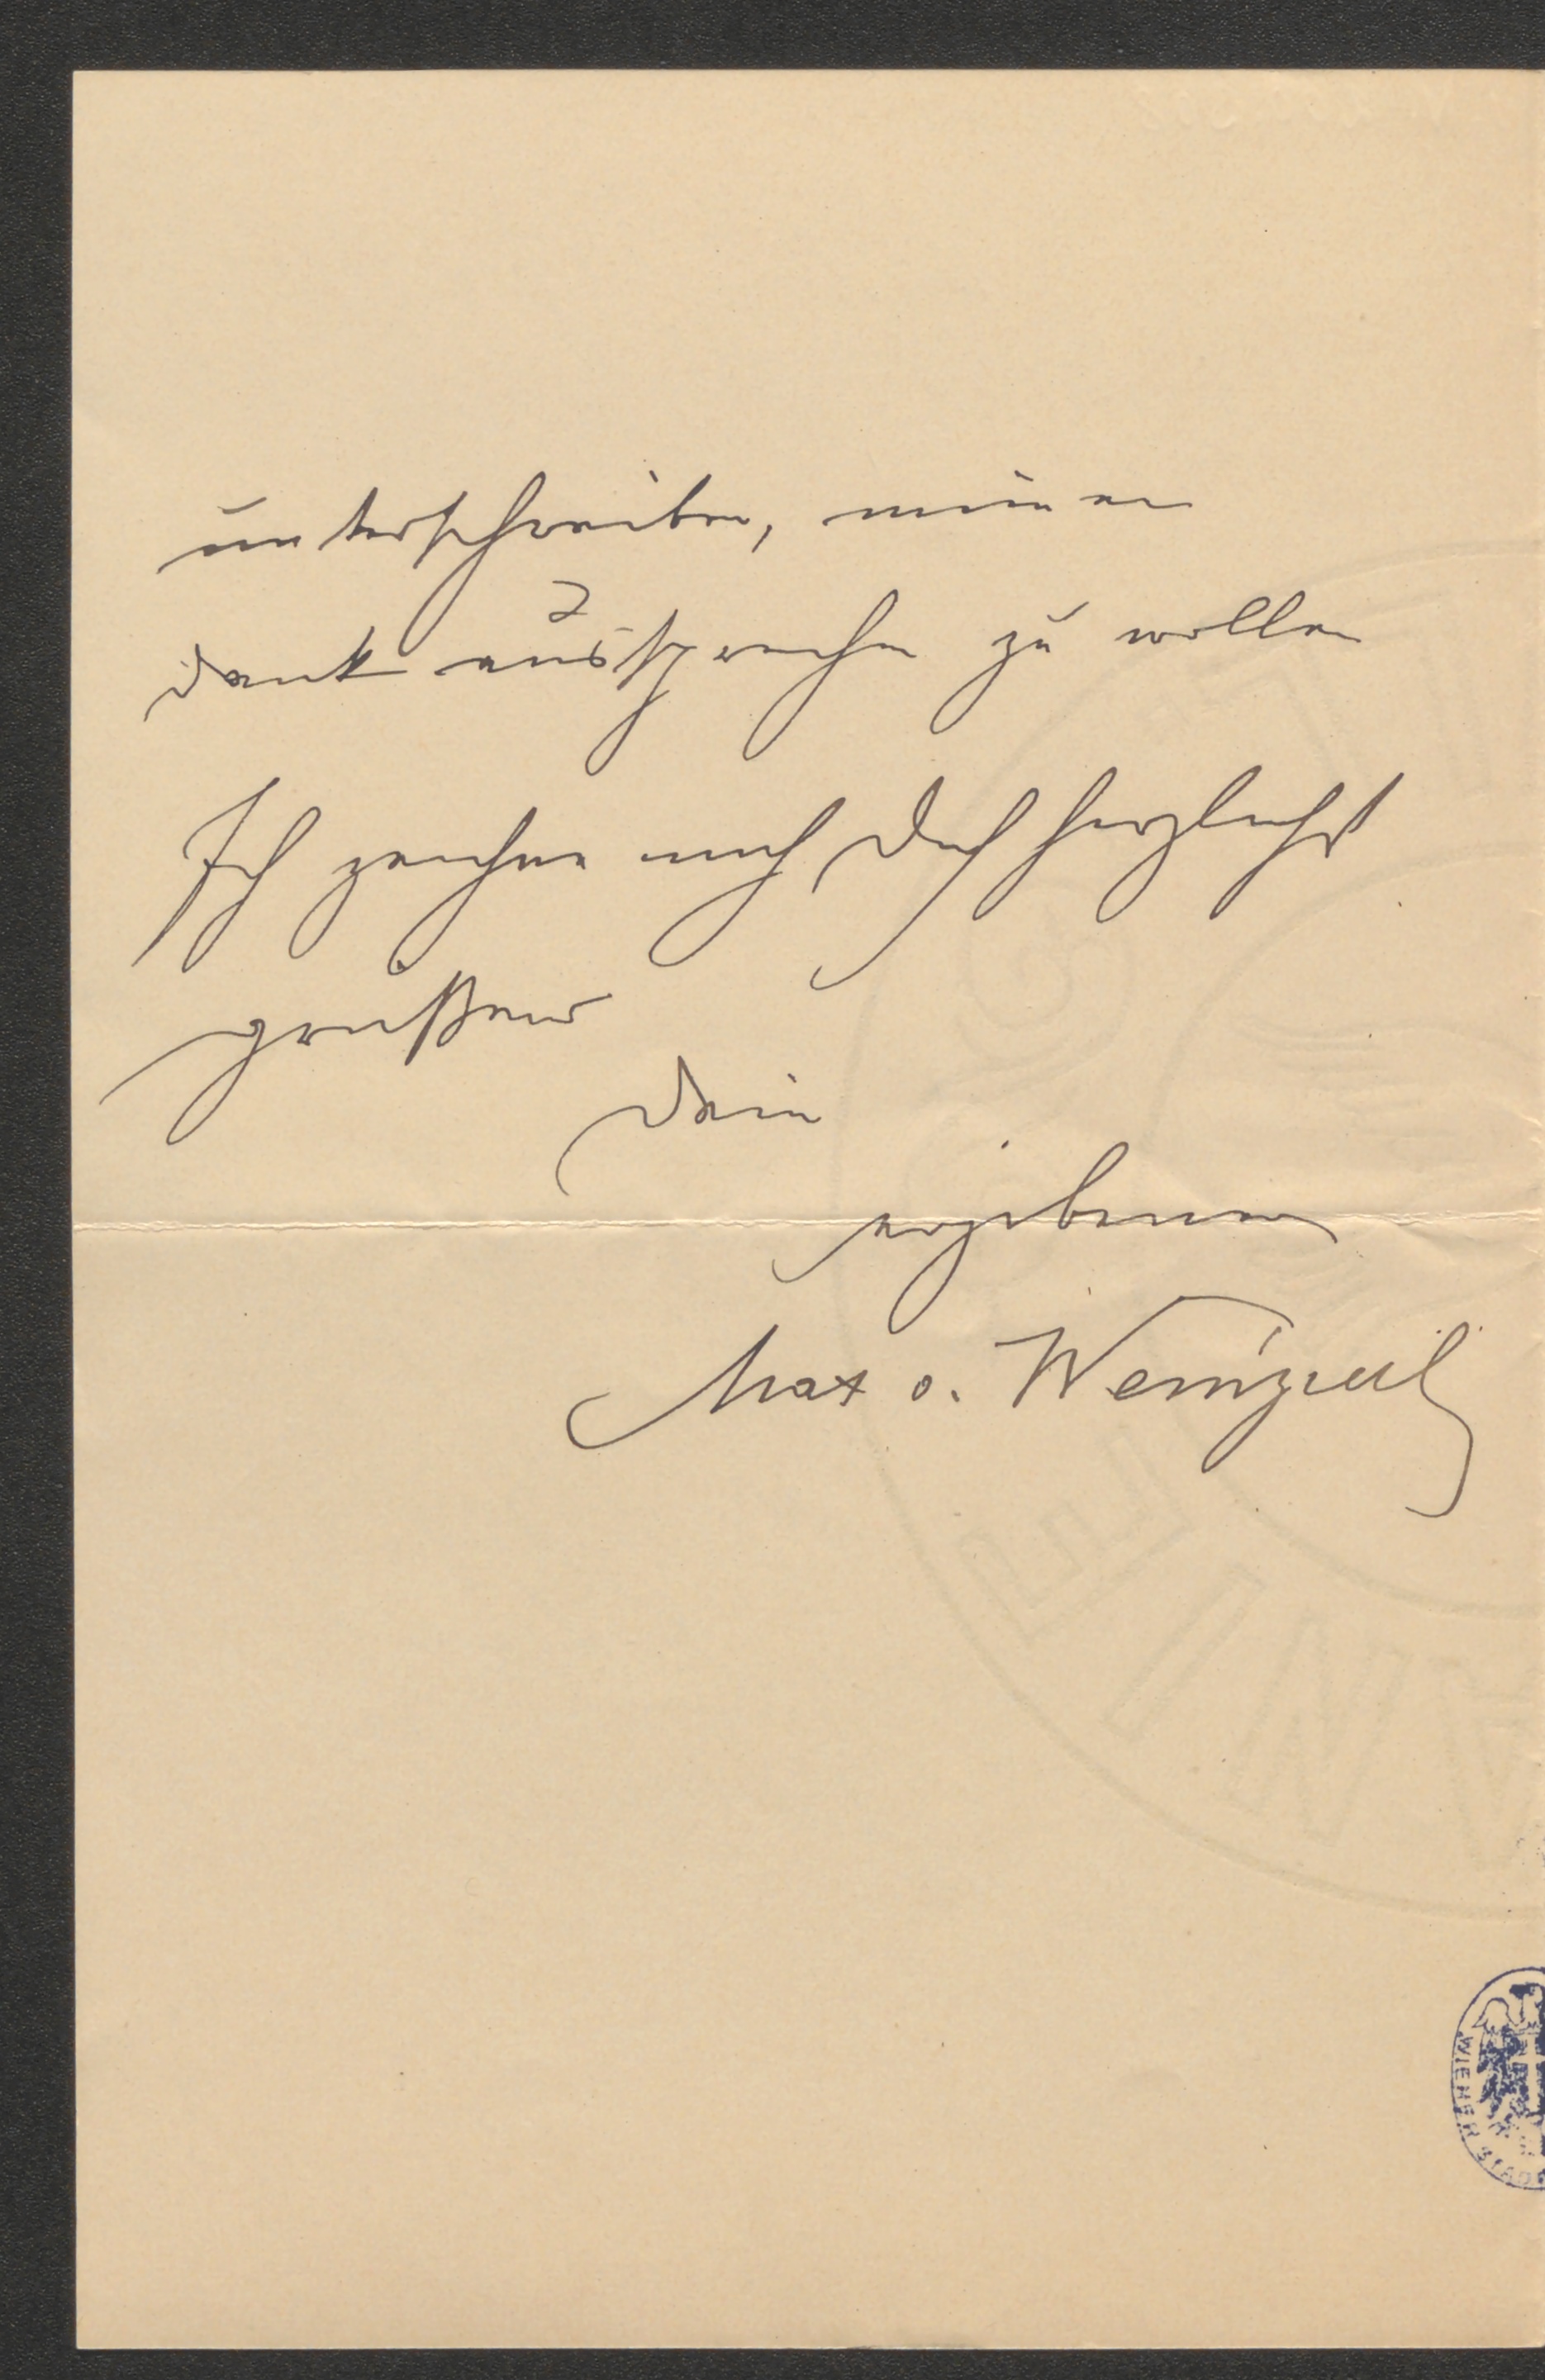 unterschreiben, meinen
Dank aussprechen zu wollen
Ich zeichne mich Dich herzlichst
grüßend
Dein
ergebener
Max v. Weinzierl
WIENER STADT